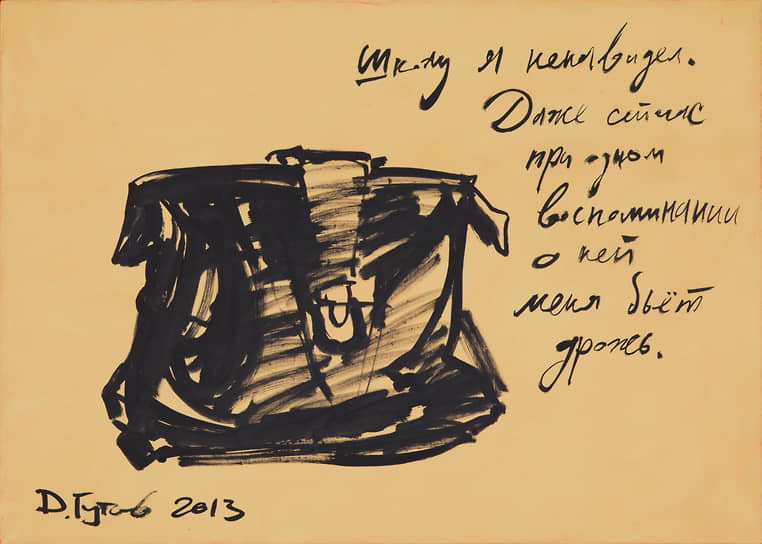 Школу я ненавидел.
Даже сейчас
при одном
воспоминании
о ней
меня бьёт
дрожь.
Д. Гутов 2013